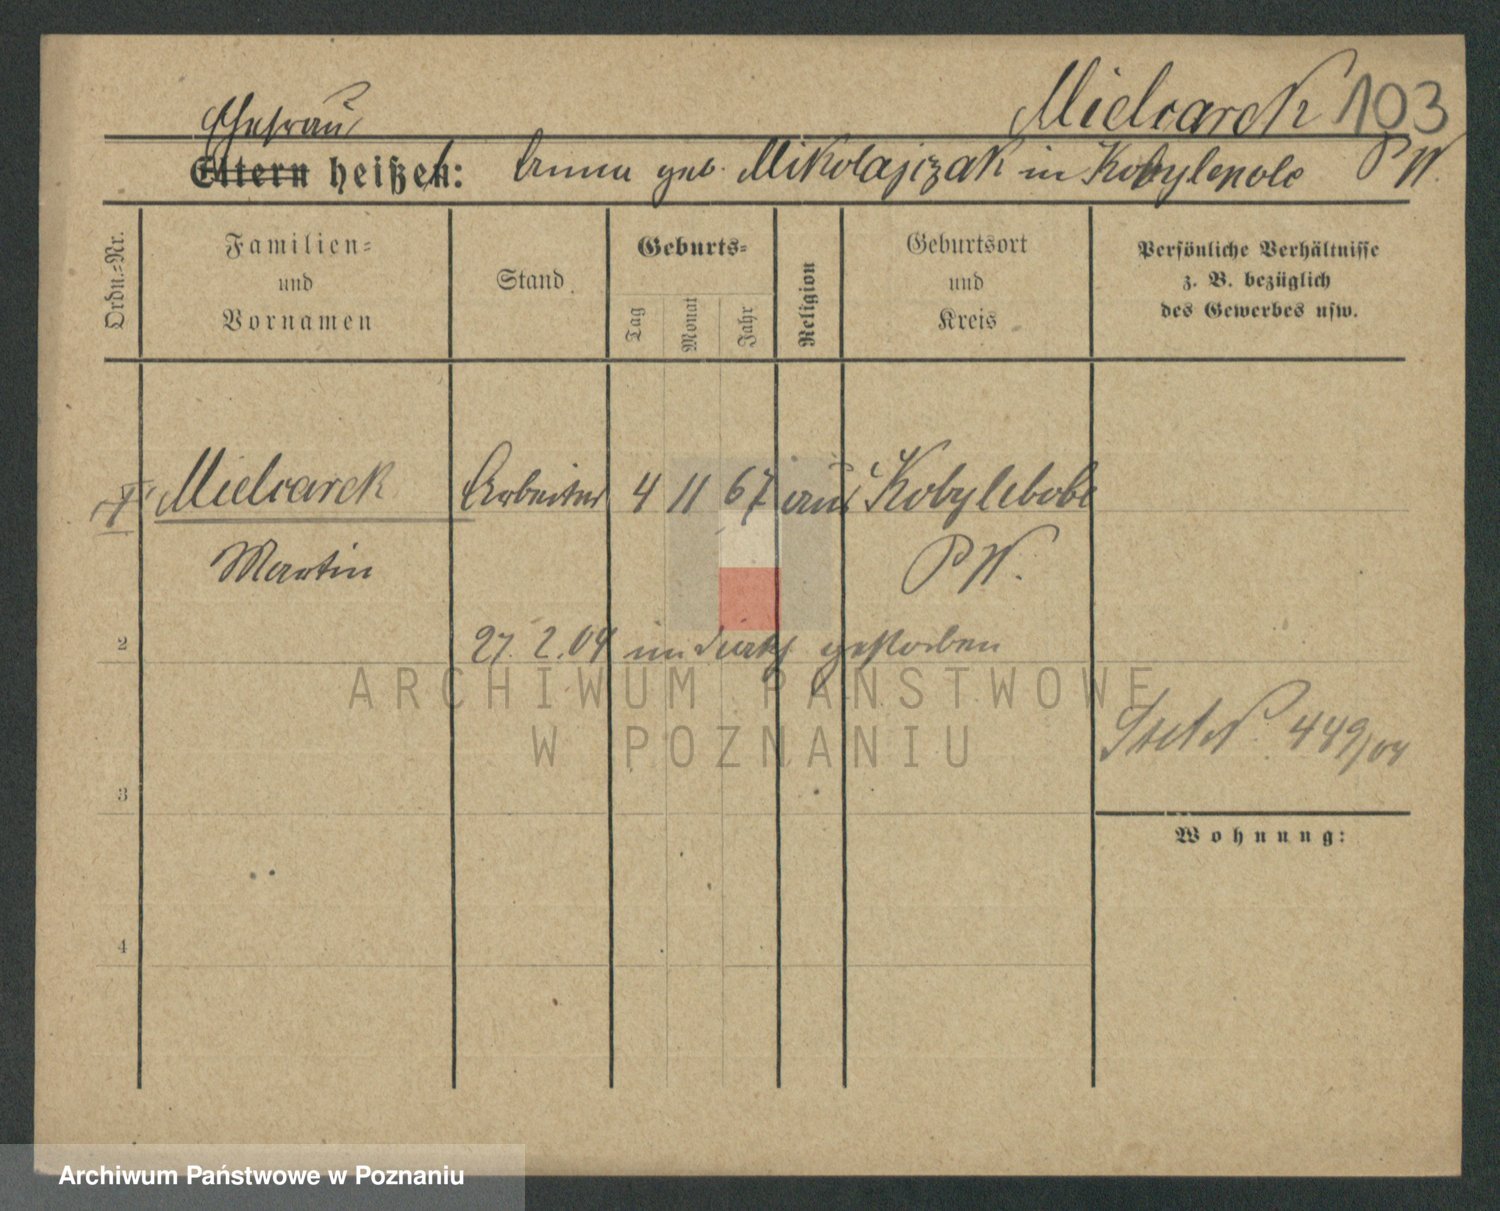 Mielcarek 103
Ehefrau
Eltern heißen: Anna geb. Mikolajczak in Kobylepole P W.
Ordn.-Nr.
Familien-
und
Vornamen
Stand
Geburts-
Tag
Monat
Jahr
Religion
Geburtsort
und
Kreis
Persönliche Verhältnisse
z. B. bezüglich
des Gewerbes usw.
Mielcarek Arbeiter 4 11 67 Kobylebole
Martin P W.
2
27. 2. 04 gestorben
ARCHIWUM PAŃSTWOWE
W POZNANIU
449/04
3
Wohnung:
4
Archiwum Państwowe w Poznaniu